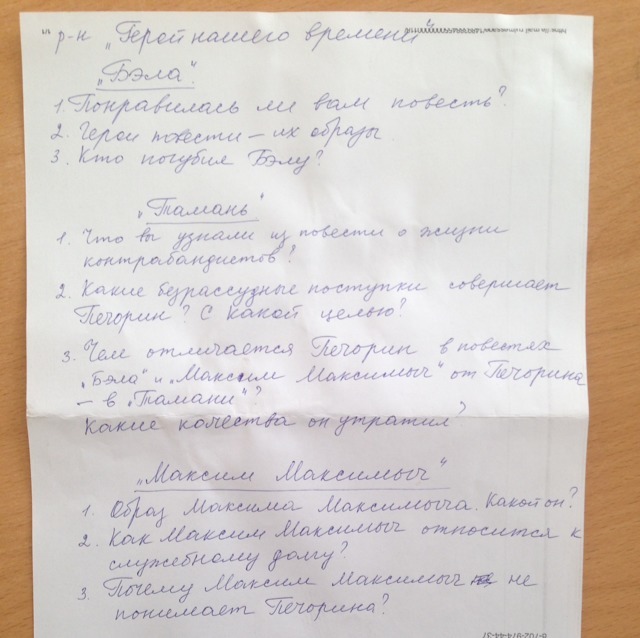 р-н „Герой нашего времени"
„Бэла".
1. Понравилась ли вам повесть?
2. Герои повести – их образы.
3. Кто погубил Бэлу?
„Тамань"
1. Что вы узнали из повести о жизни
контрабандистов?
2. Какие безрассудные поступки совершает
Печорин? С какой целью?
3. Чем отличается Печорин в повестях
„Бэла" и „Максим Максимыч" от Печорина
– в „Тамани"?
Какие качества он утратил?
„Максим Максимыч"
1. Образ Максима Максимыча. Какой он?
2. Как Максим Максимыч относится к
служебному долгу?
3. Почему Максим Максимыч не
понимает Печорина?
8-702-974-44-37